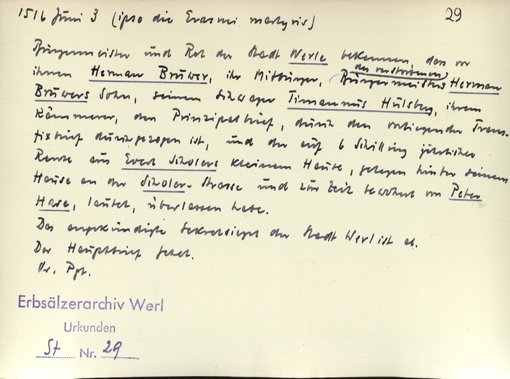 1516 Juni 3 (ipso die Erasmi martyris)
29
Bürgermeister und Rat der Stadt Werle bekennen, dass vor
des verstorbenen
ihnen Herman Bruwer, ihr Mitbürger, Bürgermeisters Herman
Bruwers Sohn, seinem Schwager Timannus Hulsberg, ihrem
Kämmerer, den Prinzipalbrief, durch den vorliegender Trans-
fixbrief durchgezogen ist, und der auf 6 Schilling jährlicher
Rente aus Evert Scholers kleinem Hause, gelegen hinter seinem
Hause an der Scholer-Strasse und zur Zeit bewohnt von Peter
Hase, lautet, überlassen habe.
Das angekündigte Sekretsiegel der Stadt Werl ist ab.
Der Hauptbrief fehlt.
Or. Pgt.
Erbsälzerarchiv Werl
Urkunden
St Nr. 29